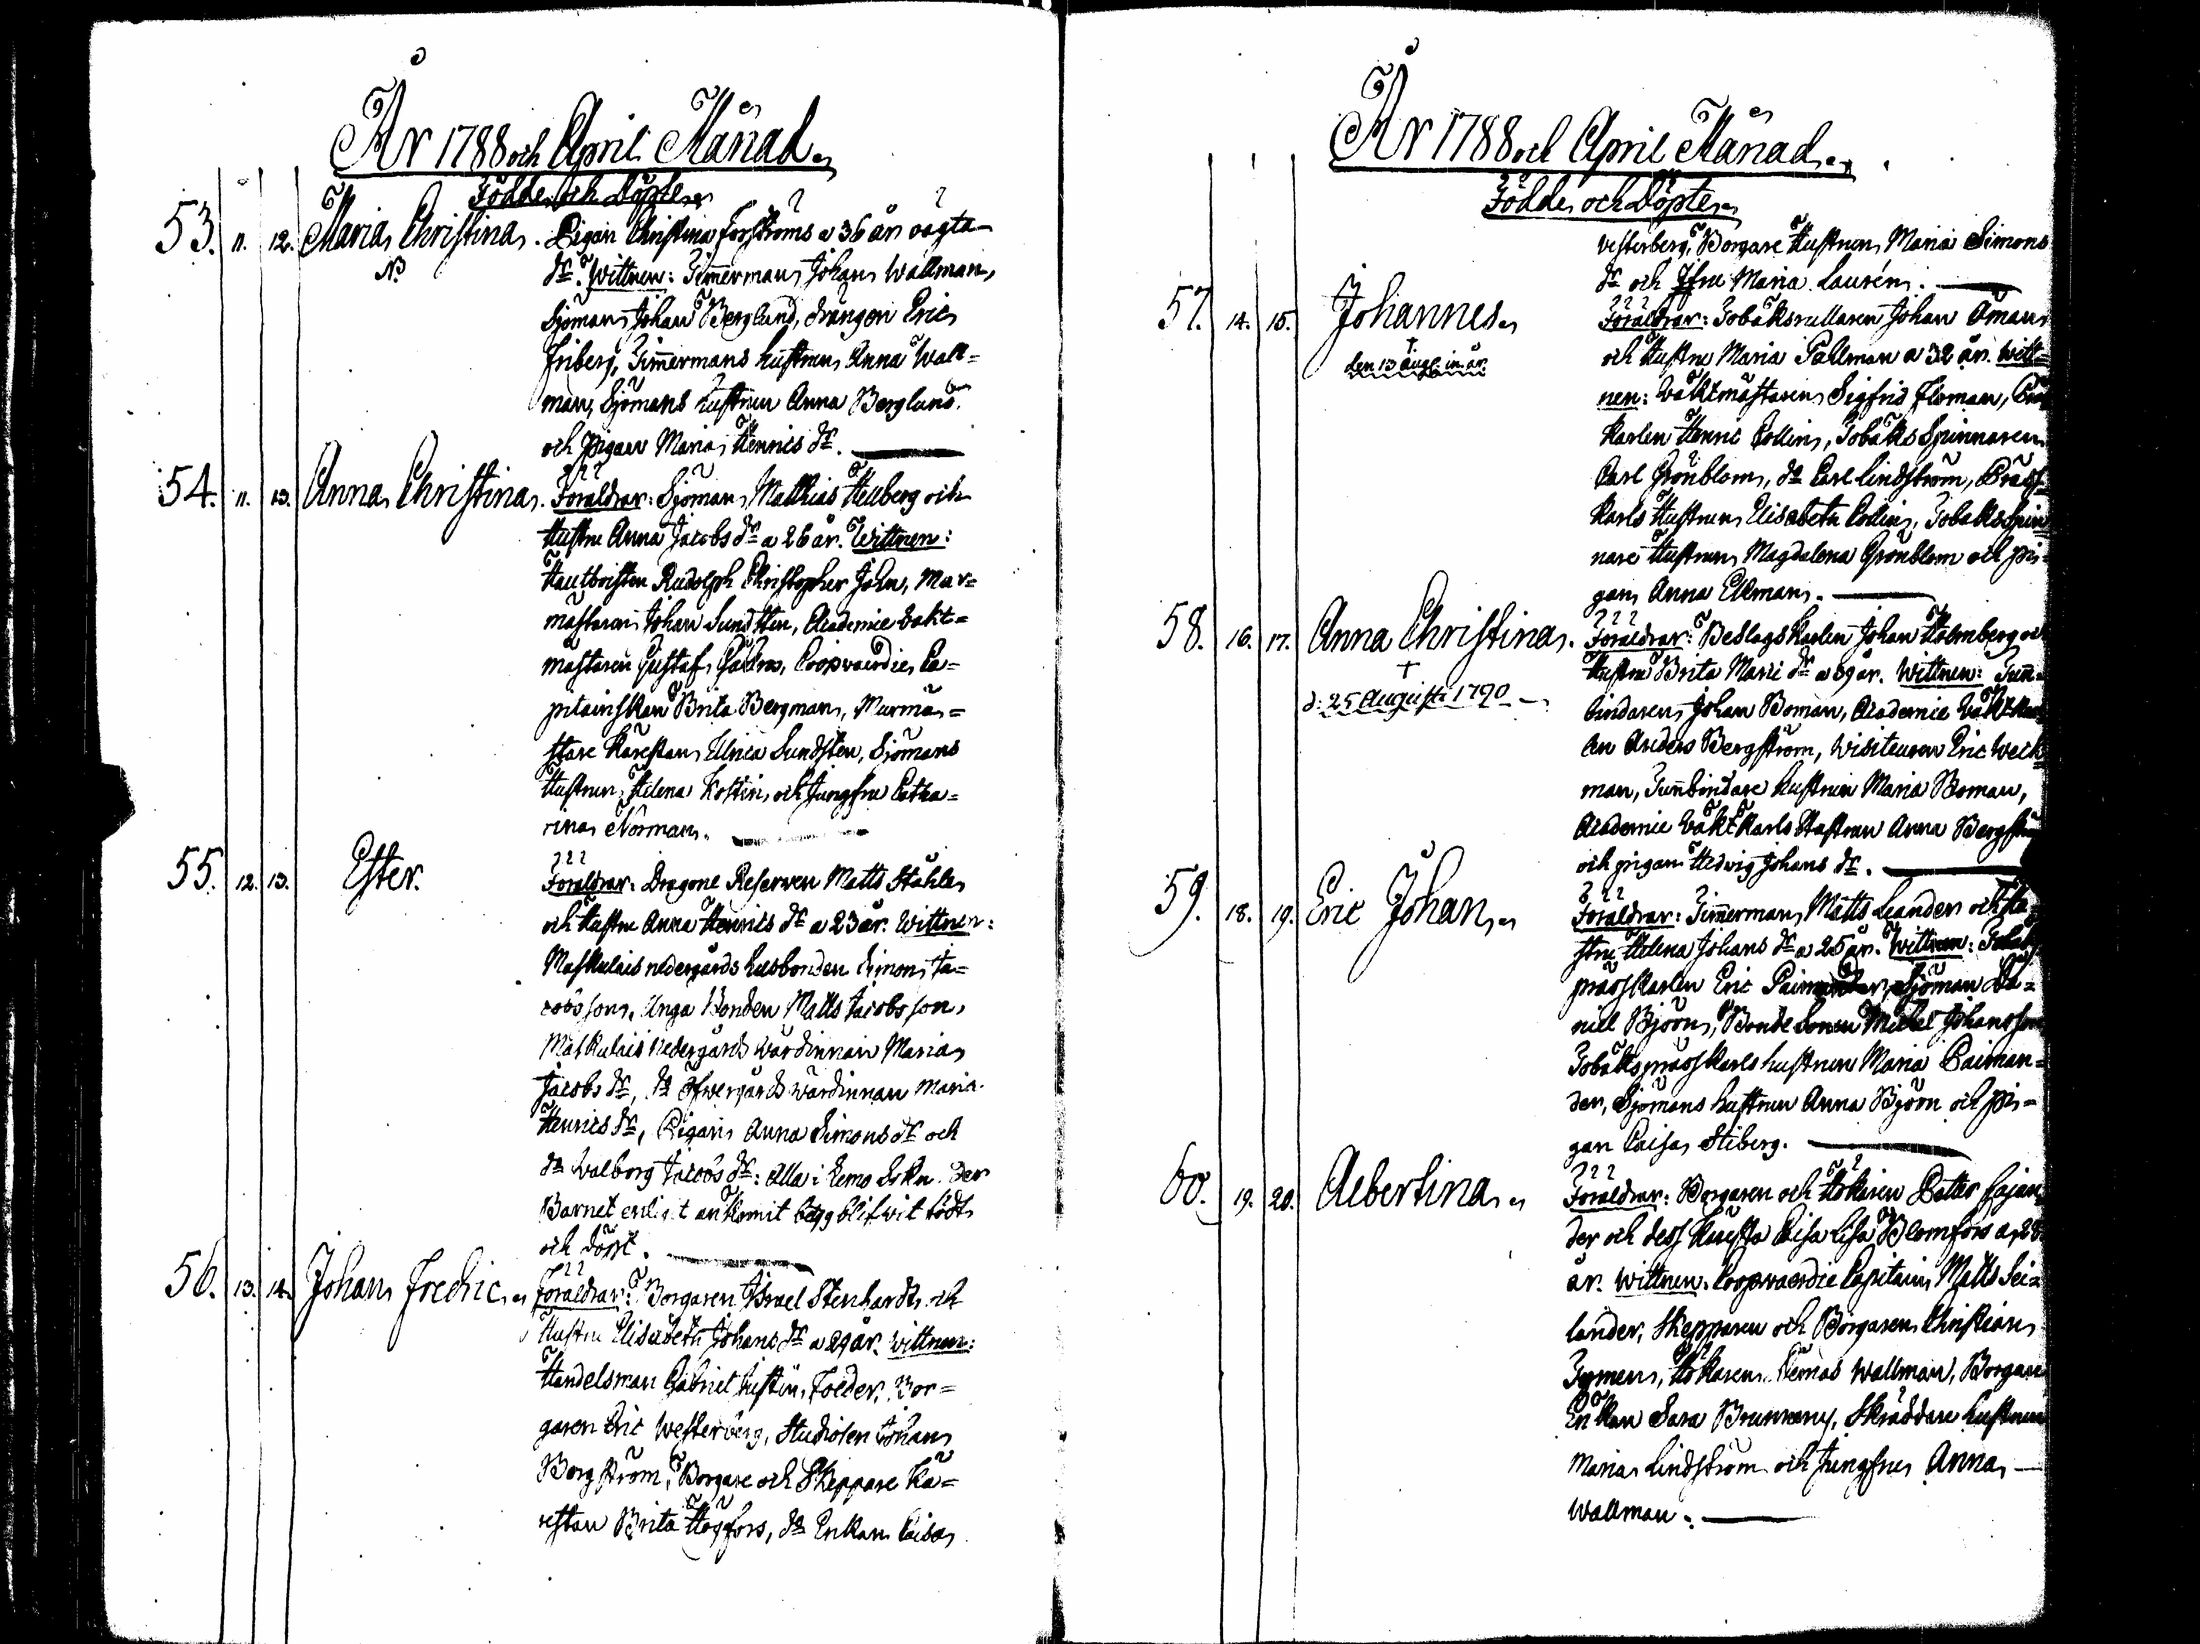 År 1788 och April Månad.
Födde och Döpte.
53. 11. 12. Maria Christina. Pigan Christina Forströms a 36 år oägta
NB dr. Wittnen: Timmerman Johan Wallman,
Sjöman Johan Berglund, drängen Eric
Friberg, Timmermans hustrun Anna Wall=
man, Sjömans hustrun Anna Berglund
och pigan Maria Henrics dr.
54. 11. 13. Anna Christina. Föräldrar: Sjöman Matthias Hellberg och
Hustru Anna Jacobs dr a 26 år. Wittnen:
Hautboisten Rudolph Christopher John, Mur=
mästaren Johan Sundsten, Academie Vakt=
mästaren Gustaf, Coopvaerdie Ca=
pitainskan Brita Bergman, Murmä=
stare Kärestan Ulrica Sundsten, Sjömans
Hustrun Helena Kostin, och Jungfru Catha=
rina Norman.
55. 12. 13. Ester. Föräldrar: Dragone Reserven Matts Ståhle
och Hustru Anna Henrics dr a 23 år. Wittnen:
Maskulais nedergårds husbonden Simon Ja=
cobsson, Unga Bonden Matts Jacobsson,
Maskulais Nedergårds wärdinnan Maria
Jacobs dr, do Öfwergårds wärdinnan Maria
Henrics dr, Pigan Anna Simons dr och
do Walborg Jacobs dr: alla i Lemo Sokn der
Barnet ankomit blifwit födt
och döpt.
56. 13. 14. Johan Fredric. Föräldrar: Borgaren Israel Stenhardt och
Hustru Elisabeth Johans dr a 29 år. Wittnen:
Handelsman Gabriel Justin, Borgaren
garen Eric Westerberg, Studiosen Johan
Borgström, Borgare och Skeppare Kä=
restan Brita Högfors, do Enkan Caisa
År 1788 och April Månad.
Födde och Döpte.
Vesterberg, Borgare Hustrun Maria Simons
dr och Jfru Maria Laurén.
57. 14. 15. Johannes. Föräldrar: Tobaksrullaren Johan Öman
och Hustru Maria Pallman a 32 år. Witt=
den 13 Aug. in. år. nen: Vaktmästaren Sigfrid Floman,
Karlen Henric Collin, Tobaks Spinnaren
Carl Grönblom, do Carl Lindström, Präss=
Karls Hustrun Elisabeth Collin, Tobaks Spin
nare Hustrun Magdalena Grönblom och pi=
gan Anna Ekman.
58. 16. 17. Anna Christina. Föräldrar: Beslags Karlen Johan Holmberg och
Hustru Brita Marie dr a 39 år. Wittnen: Tun=
d: 25 Augusti 1790 bindaren Johan Boman, Academie Vakt Karl
en Anders Bergström, Visiteuren Eric Weck=
man, Tunbindare hustrun Maria Boman,
Academie Vakt Karls Hustrun Anna Bergström
och pigan Hedvig Johans dr.
59. 18. 19. Eric Johan. Föräldrar: Timmerman Matts Leander och Hu=
stru Helena Johans dr a 25 år. Wittnen: Tobaks
prässkarlen Eric Paimander, Sjöman Da=
niel Björn, Bonde Sonen Michel Johansson
Tobaksprässkarls hustrun Maria Paiman=
der, Sjömans hustrun Anna Björn och pi=
gan Caisa Stiberg.
60. 19. 20. Albertina. Föräldrar: Borgaren och Hökaren Petter Cajan
der och dess Käresta Caisa Lisa Blomfors a 28
år. Wittnen: Coopvaerdie Capitain Matts Sei=
lander, Skepparen och Borgaren Christian
Tymen, Hökaren Wallman, Borgare
Enkan Sara Brunberg, Skräddare hustrun
Maria Lindström och Jungfru Anna
Wallman.